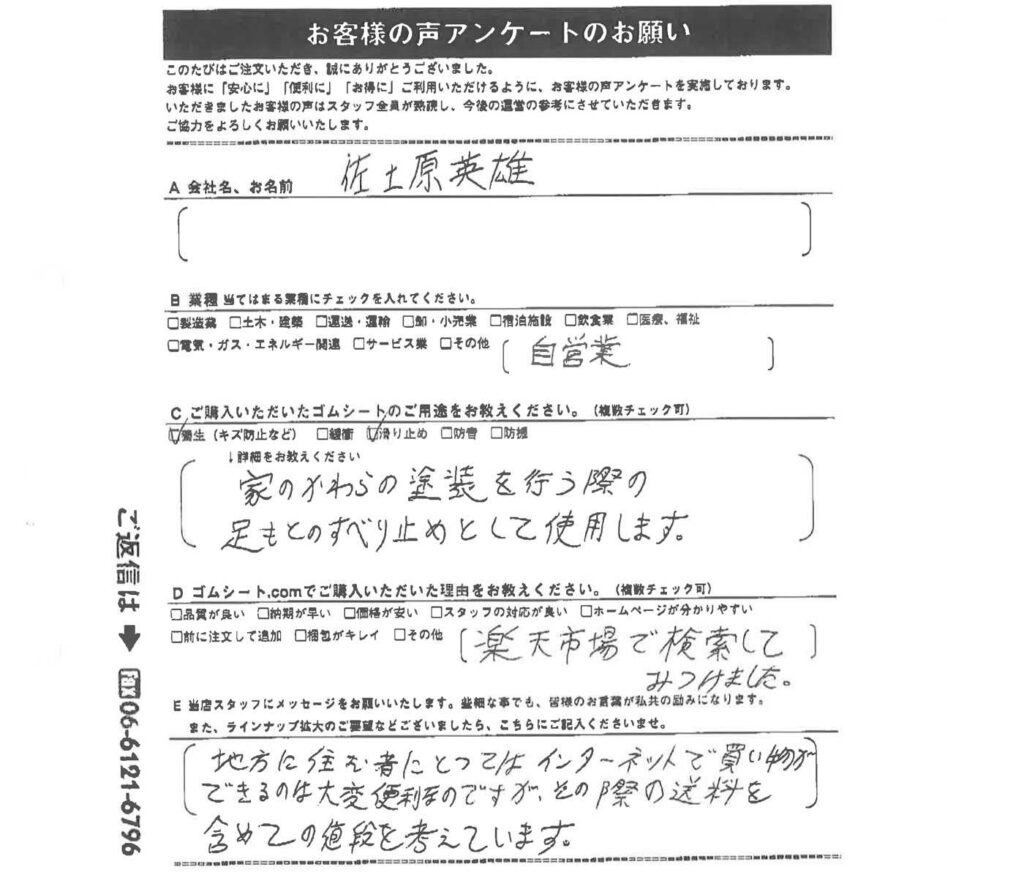 お客様の声アンケートのお願い
このたびはご注文いただき、誠にありがとうございました。
お客様に「安心に」「便利に」「お得に」ご利用いただけるように、お客様の声アンケートを実施しております。
いただきましたお客様の声はスタッフ全員が熟読し、今後の運営の参考にさせていただきます。
ご協力をよろしくお願いいたします。
A 会社名、お名前 佐土原英雄
B 業種 当てはまる業種にチェックを入れてください。
□製造業 □土木・建築 □運送・運輸 □卸・小売業 □宿泊施設 □飲食業 □医療、福祉
□電気・ガス・エネルギー関連 □サービス業 □その他 [自営業]
C ご購入いただいたゴムシートのご用途をお教えください。(複数チェック可)
☑養生(キズ防止など) □緩衝 ☑滑り止め □防音 □防振
↓詳細をお教えください
家のかわらの塗装を行う際の
足もとのすべり止めとして使用します。
D ゴムシート.comでご購入いただいた理由をお教えください。(複数チェック可)
□品質が良い □納期が早い □価格が安い □スタッフの対応が良い □ホームページが分かりやすい
□前に注文して追加 □梱包がキレイ □その他 [楽天市場で検索して]
みつけました。
E 当店スタッフにメッセージをお願いいたします。些細な事でも、皆様のお言葉が私共の励みになります。
また、ラインナップ拡大のご要望などございましたら、こちらにご記入くださいませ。
地方に住む者にとってはインターネットで買い物が
できるのは大変便利なのですが、その際の送料を
含めての値段を考えています。
ご返信は➡FAX06-6121-6796